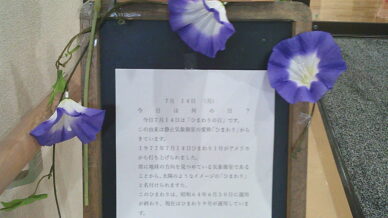 7月 14日 (月)
今日は何の日?
今日7月14日は「ひまわりの日」です。
この由来は静止気象衛星の愛称「ひまわり」から
きています。
1977年7月14日ひまわり1号がアメリカ
から打ち上げられました。
常に地球の方向を見つめている気象衛星である
ことから、太陽のようなイメージの「ひまわり」
と名付けられました。
このひまわりは、昭和64年6月30日の運用
が終わり、現在はひまわり9号が運用して
います。